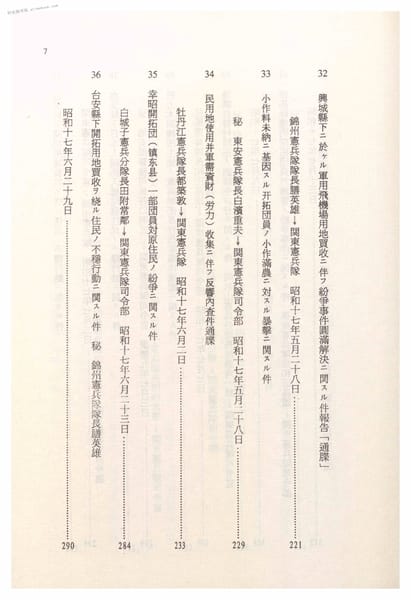 32 興城縣下ニ於ケル軍用飛機場用地買收ニ伴フ紛爭事件圓滿解決ニ関スル件報告「通牒」
錦州憲兵隊隊長膳英雄→関東憲兵隊 昭和十七年五月二十八日 221
33 小作料未納ニ基因スル开拓団員ノ小作滿農ニ对スル暴擊ニ関スル件
秘 東安憲兵隊長白濱重夫→関東憲兵隊司令部 昭和十七年五月二十八日 229
34 民用地使用并軍需資財(劳力)收集ニ伴フ反響內查件通牒
牡丹江憲兵隊長都築敦→関東憲兵隊 昭和十七年六月二日 233
35 幸昭開拓団(镇东县)一部団員対原住民ノ紛爭ニ関スル件
白城子憲兵分隊長田附常鄰→関東憲兵隊司令部 昭和十七年六月二十三日 284
36 台安縣下開拓用地買收ヲ繞ル住民ノ不穩行動ニ関スル件 秘 錦州憲兵隊隊長膳英雄
昭和十七年六月二十九日 290
7